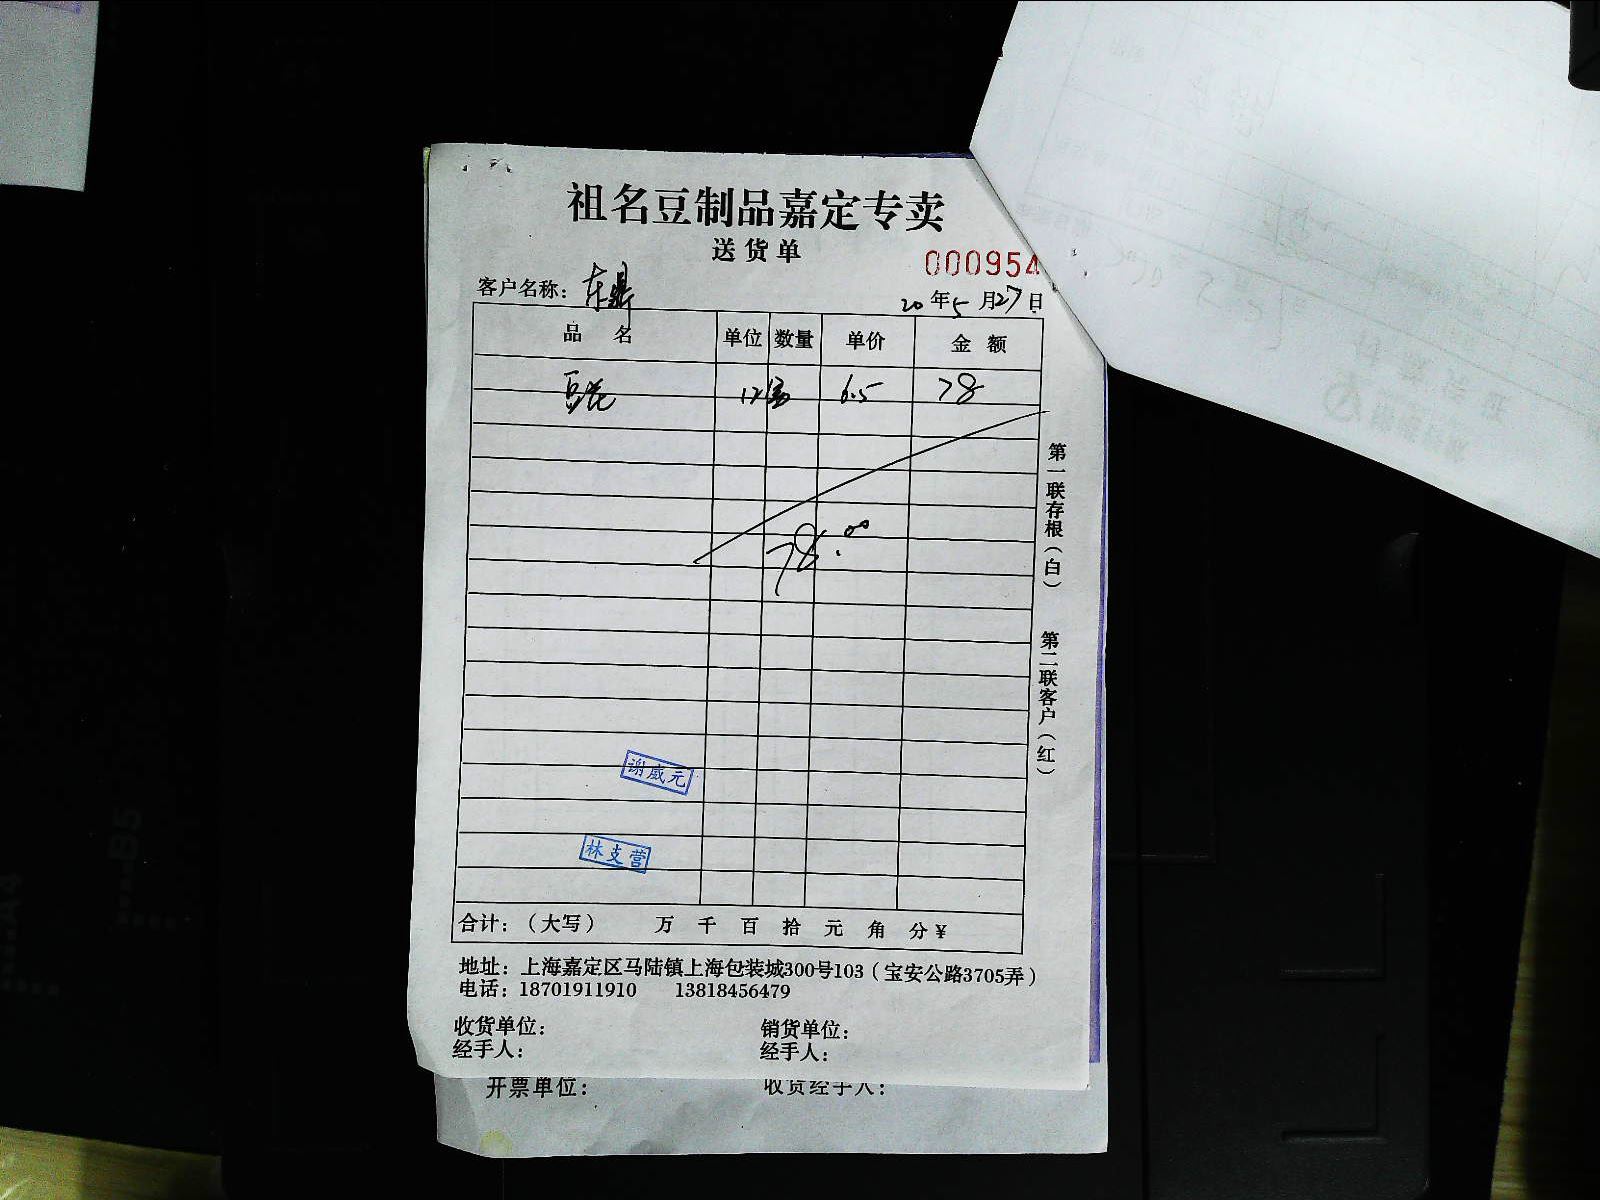 祖名豆制品嘉定专卖
送货单
000954
客户名称：东鼎
20年5月27日
品名 单位 数量 单价 金额
豆花 12盒 6.5 78
78.00
第一联存根（白）
第二联客户（红）
谢威元
林支营
合计：（大写） 万 千 百 拾 元 角 分 ¥
地址：上海嘉定区马陆镇上海包装城300号103（宝安公路3705弄）
电话：18701911910 13818456479
收货单位： 销货单位：
经手人： 经手人：
开票单位： 收货经手人：